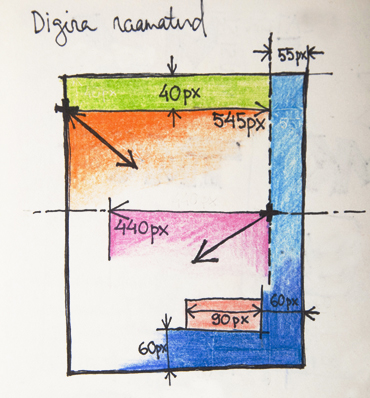 Digira raamatud
55px
40px
545px
440px
60px
90px
60px